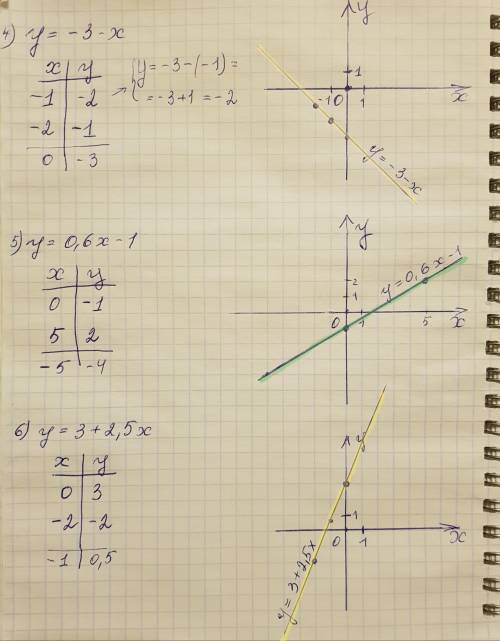 4) y = -3-x
x y
-1 -2 → { y = -3-(-1) =
= -3+1 = -2
-2 -1
0 -3
y
1
-1 0 1 x
y = -3-x
5) y = 0,6x-1
x y
0 -1
5 2
-5 -4
y
2
1
0 1 5 x
y = 0,6x-1
6) y = 3+2,5x
x y
0 3
-2 -2
-1 0,5
y
1
0 1 x
y = 3+2,5x